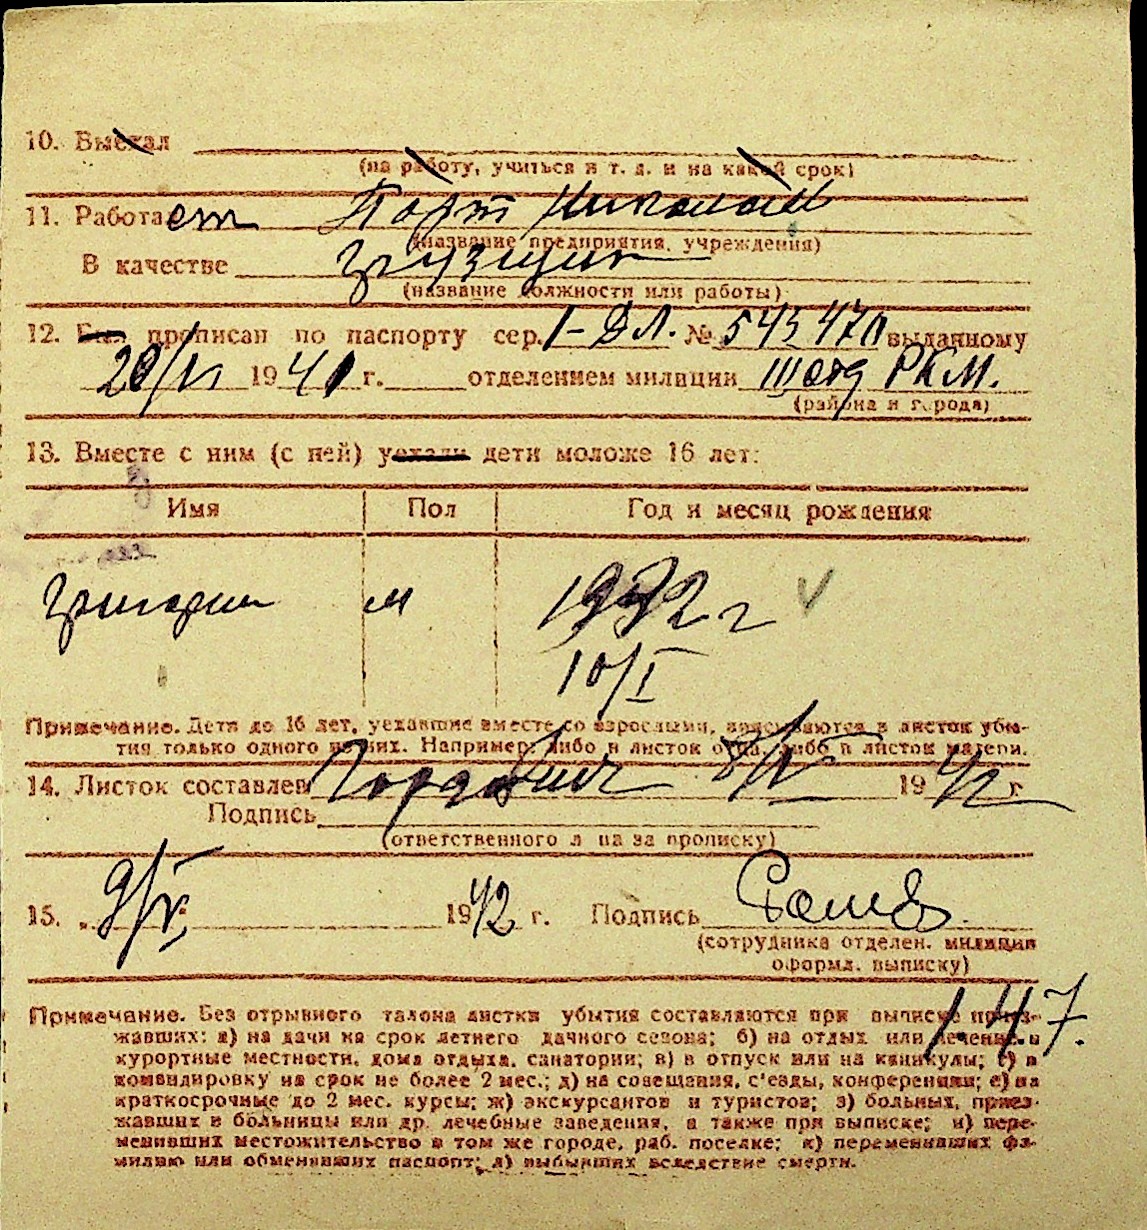 10. Выехал
(на работу, учиться и т. д. и на какой срок)
11. Работает Порт Николай
(название предприятия, учреждения)
В качестве грузчик
(название должности или работы)
12. Был прописан по паспорту сер. I-ДЛ. № 543470 выданному
20/VI 1940 г. отделением милиции III отд РКМ.
(района и города)
13. Вместе с ним (с ней) уехали дети моложе 16 лет:
Имя Пол Год и месяц рождения
Григорий м 1932 г
10/I
Примечание. Дети до 16 лет, уехавшие вместе со взрослыми, вписываются в листок убы-
тия только одного из них. Например: либо в листок отца, либо в листок матери.
14. Листок составлен 1942 г
Подпись
(ответственного лица за прописку)
15. 9/V 1942 г. Подпись
(сотрудника отделен. милиции
оформл. выписку)
147.
Примечание. Без отрывного талона листки убытия составляются при выписке приез-
жавших: а) на дачи на срок летнего дачного сезона; б) на отдых или лечение в
курортные местности, дома отдыха, санатории; в) в отпуск или на каникулы; г) в
командировку на срок не более 2 мес.; д) на совещания, с'езды, конференции; е) на
краткосрочные до 2 мес. курсы; ж) экскурсантов и туристов; з) больных, приез-
жавших в больницы или др. лечебные заведения, а также при выписке; и) пере-
менивших местожительство в том же городе, раб. поселке; к) переменивших фа-
милию или обменявших паспорт; л) выбывших вследствие смерти.